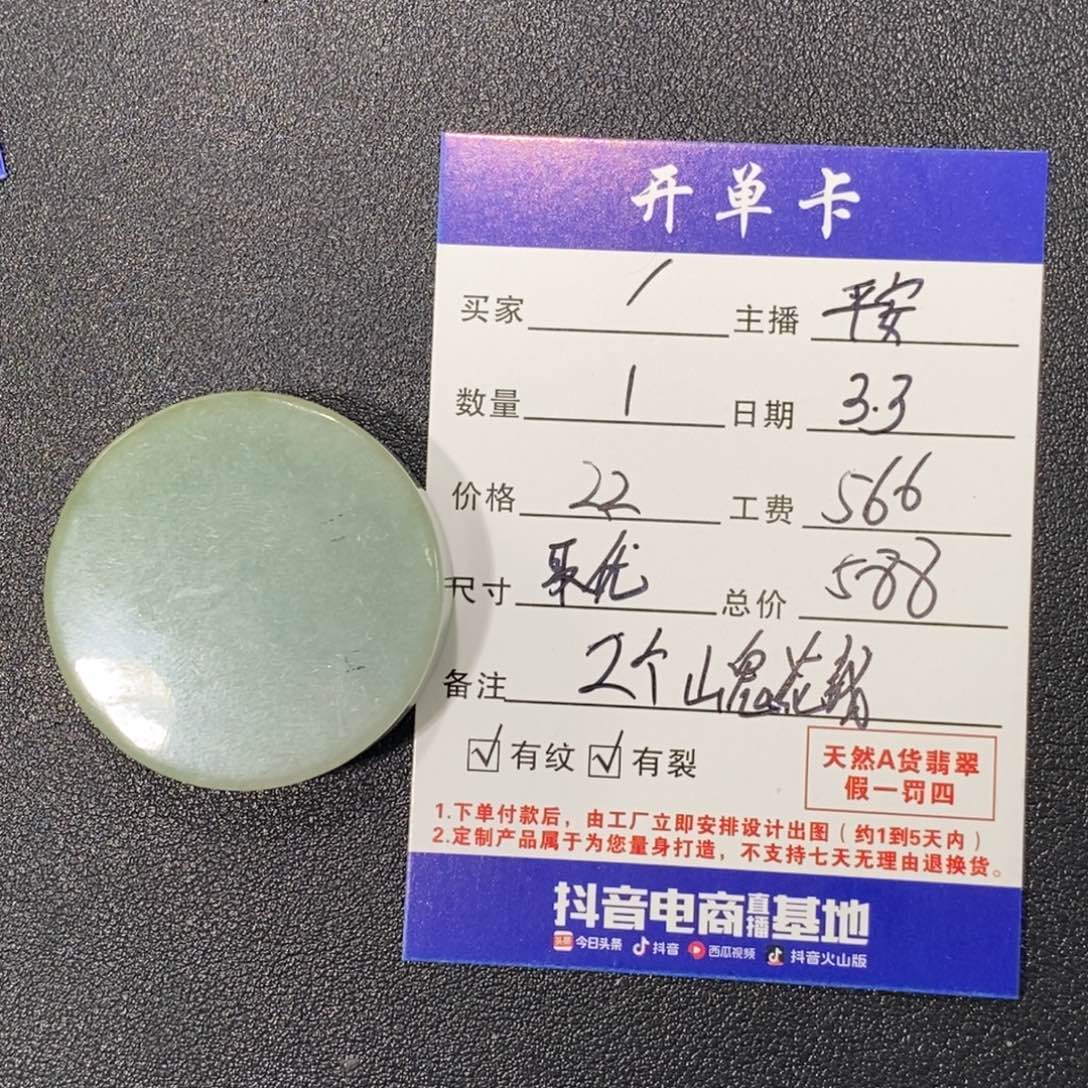 开单卡
买家 / 主播 平安
数量 1 日期 3.3
价格 22 工费 566
尺寸 取优 总价 588
备注 2个山鬼花钱
☑有纹 ☑有裂
天然A货翡翠
假一罚四
1.下单付款后，由工厂立即安排设计出图（约1到5天内）
2.定制产品属于为您量身打造，不支持七天无理由退换货。
抖音电商直播基地
头条 今日头条 抖音 西瓜视频 抖音火山版